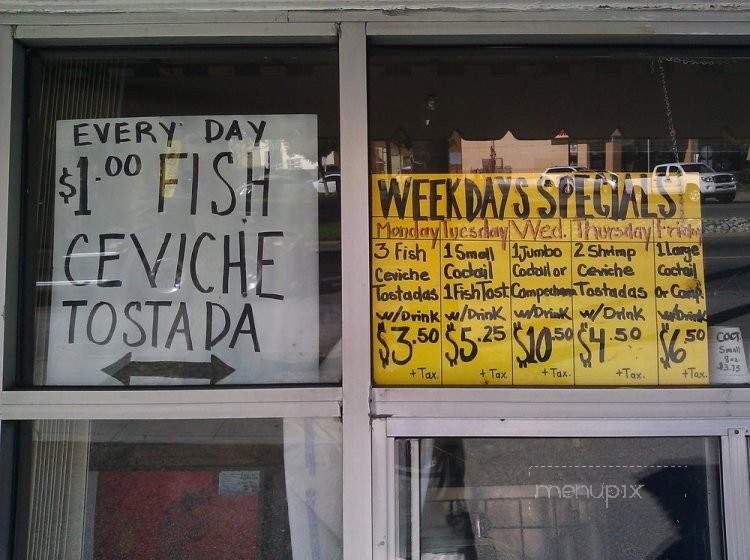 EVERY DAY
$1.00 FISH
CEVICHE
TOSTADA
WEEKDAYS SPECIALS
Monday Tuesday Wed. Thursday Friday
3 Fish
Ceviche
Tostadas
w/Drink
$3.50
+ Tax
1 Small
Coctail
1 Fish Tost
w/Drink
$5.25
+ Tax
1 Jumbo
Coctail or
w/Drink
$10.50
+ Tax.
2 Shrimp
Ceviche
Tostadas
w/Drink
$4.50
+Tax.
1 Large
Coctail
or Comp.
w/Drink
$6.50
+Tax.
Small
8 oz
$3.75
menupix